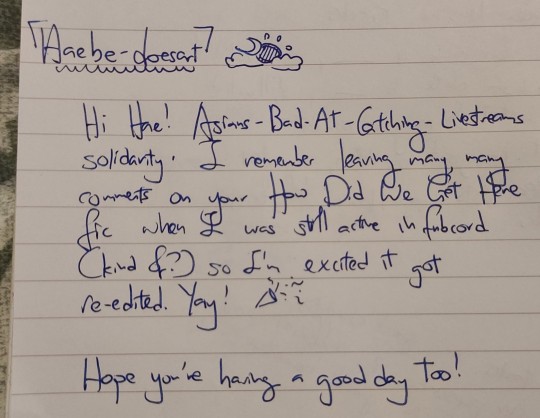 「Haebe-doesart」
Hi Hae! Asians-Bad-At-Catching-Livestreams
solidarity. I remember leaving many, many
comments on your How Did We Get Here
fic when I was still active in fubcord
(kind of?) so I'm excited it got
re-edited. Yay!
Hope you're having a good day too!